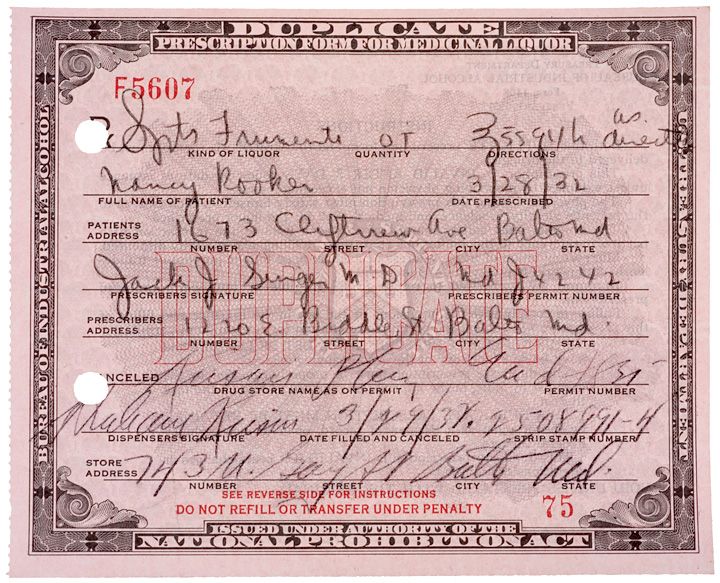 DUPLICATE
PRESCRIPTION FORM FOR MEDICINAL LIQUOR
F5607
Spts Frumente OT 3 as direct
KIND OF LIQUOR QUANTITY DIRECTIONS
Nancy Rooker 3/28/32
FULL NAME OF PATIENT DATE PRESCRIBED
PATIENTS ADDRESS 1673 Cliftview Ave Balto Md
NUMBER STREET CITY STATE
Jack J Singer M D. Md J4242
PRESCRIBERS SIGNATURE PRESCRIBERS PERMIT NUMBER
PRESCRIBERS ADDRESS 1220 E Biddle St Balto Md.
NUMBER STREET CITY STATE
DUPLICATE
CANCELED
DRUG STORE NAME AS ON PERMIT PERMIT NUMBER
3/29/32. 2508991-4
DISPENSERS SIGNATURE DATE FILLED AND CANCELED STRIP STAMP NUMBER
STORE ADDRESS 743 N. Gay St Balto Md.
NUMBER STREET CITY STATE
SEE REVERSE SIDE FOR INSTRUCTIONS
DO NOT REFILL OR TRANSFER UNDER PENALTY 75
ISSUED UNDER AUTHORITY OF THE
NATIONAL PROHIBITION ACT
BUREAU OF INDUSTRIAL ALCOHOL